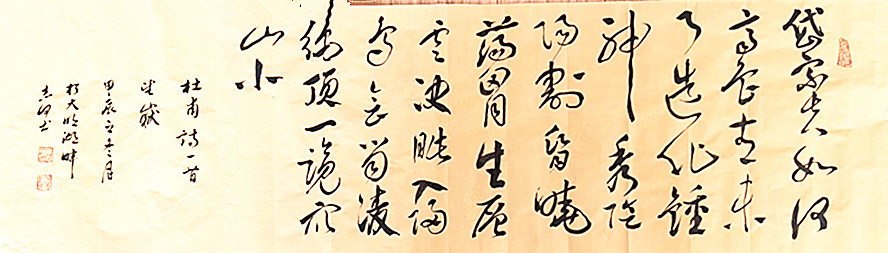 岱宗夫如何
齊魯青未
了造化鍾
神秀陰
陽割昏曉
蕩胸生層
雲決眥入歸
鳥會當凌
絕頂一覽眾
山小
杜甫詩一首
望嶽
甲辰立冬月
於大明湖畔